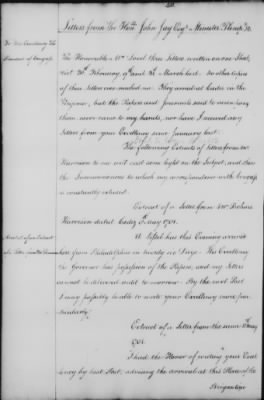 Letters from The Hon.ble John Jay Esq.r Minister Plenip.o &c.
To His Excellency The
President of Congress
The Honorable Mr.
three Letters written on one Sheet,
Vizt. 20th February, 9th and March last. No other Copies
of these Letters was reached me. They arrived at Cadiz in the
but the Papers and Journals said to
never came to my hands, nor have I received any
Letters from your Excellency since January last.
The following Extracts of Letters from Mr.
Harrison to me will cast some light on the Subject, and shew
the Inconveniences to which my correspondence with Congress
is constantly exposed.
Extract of a Letter from Mr. Richard
Harrison dated Cadiz May 1781.
A Vessel has this Evening arrived
here from Philadelphia in twenty six Days. His Excellency
the Governor has possession of the Papers, and my Letters
cannot be delivered until to morrow. By the next Post
I may possibly be able to write your Excellency more par-
ticularly.
Extract of a Letter from the same May
1781.
I had the Honor of writing your Excel-
lency by last Post, advising the arrival at this Place of the
Brigantine